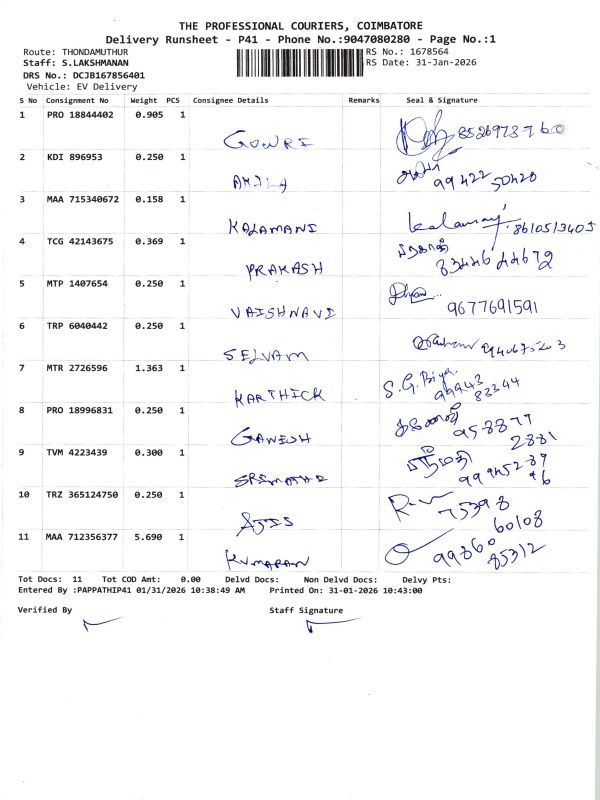 THE PROFESSIONAL COURIERS, COIMBATORE
Delivery Runsheet - P41 - Phone No.:9047080280 - Page No.:1
Route: THONDAMUTHUR RS No.: 1678564
Staff: S.LAKSHMANAN RS Date: 31-Jan-2026
DRS No.: DCJB167856401
Vehicle: EV Delivery
S No Consignment No Weight PCS Consignee Details Remarks Seal & Signature
1 PRO 18844402 0.905 1
GOWRI
2 KDI 896953 0.250 1
99422 50420
3 MAA 715340672 0.158 1
KALAMANI Kalamani 8610513405
4 TCG 42143675 0.369 1
PRAKASH பிரகாஷ் 83446 44672
5 MTP 1407654 0.250 1
VAISHNAVI 9677691591
6 TRP 6040442 0.250 1
SELVAM
7 MTR 2726596 1.363 1
KARTHICK S.G. Priya 99943 83344
8 PRO 18996831 0.250 1
GANESH 958877 2881
9 TVM 4223439 0.300 1
SRIMATHI ஸ்ரீமதி 99945289 96
10 TRZ 365124750 0.250 1
75398 60108
11 MAA 712356377 5.690 1
KUMARAN 99860 85312
Tot Docs: 11 Tot COD Amt: 0.00 Delvd Docs: Non Delvd Docs: Delvy Pts:
Entered By :PAPPATHIP41 01/31/2026 10:38:49 AM Printed On: 31-01-2026 10:43:00
Verified By Staff Signature